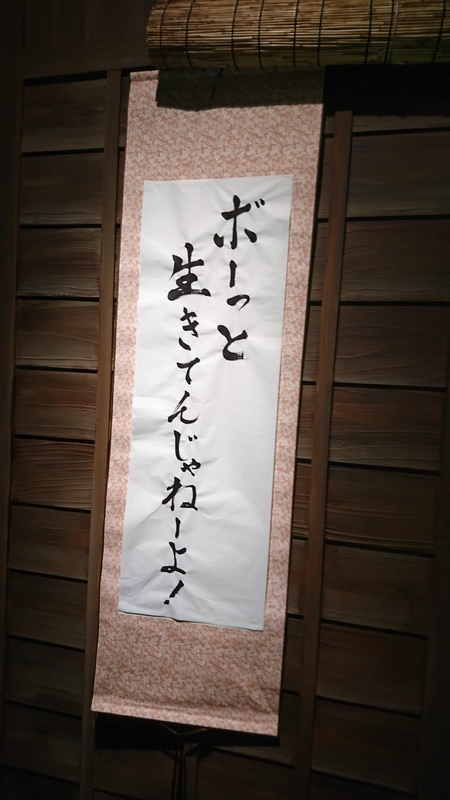 ボーっと
生きてんじゃねーよ!